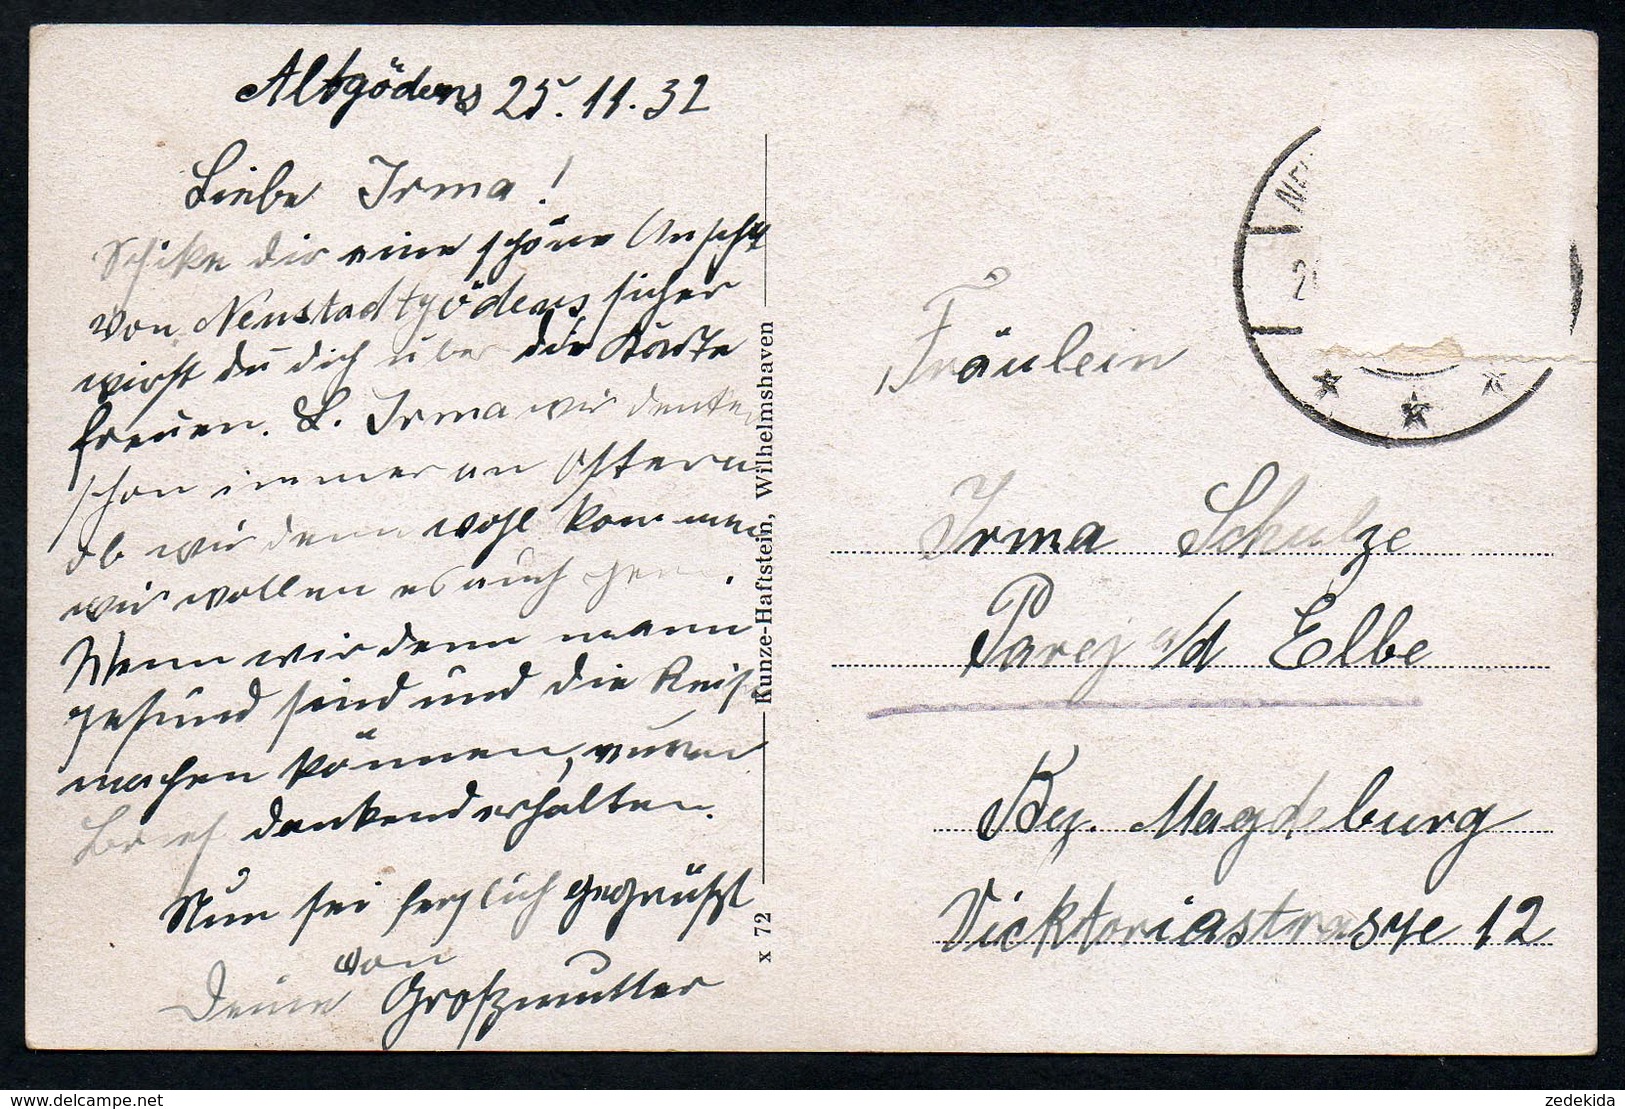 Altgödens 25.11.32
Liebe Irma!
Schike dir eine schöne Ansicht
von Neustadtgödens, sicher
wirst du dich über die Karte
freuen. L. Irma wir denken
schon immer an Ostern
ob wir denn wohl kommen
wir wollen es auch gern.
Wenn wir denn man
gesund sind und die Reise
machen können, euren
Brief dankend erhalten.
Nun sei herzlich gegrüßt
von
Deine Großmutter
x 72 Kunze-Haftstein, Wilhelmshaven
Fräulein
Irma Schulze
Parey a/d Elbe
Bez. Magdeburg
Vicktoriastrasse 12
zedekida